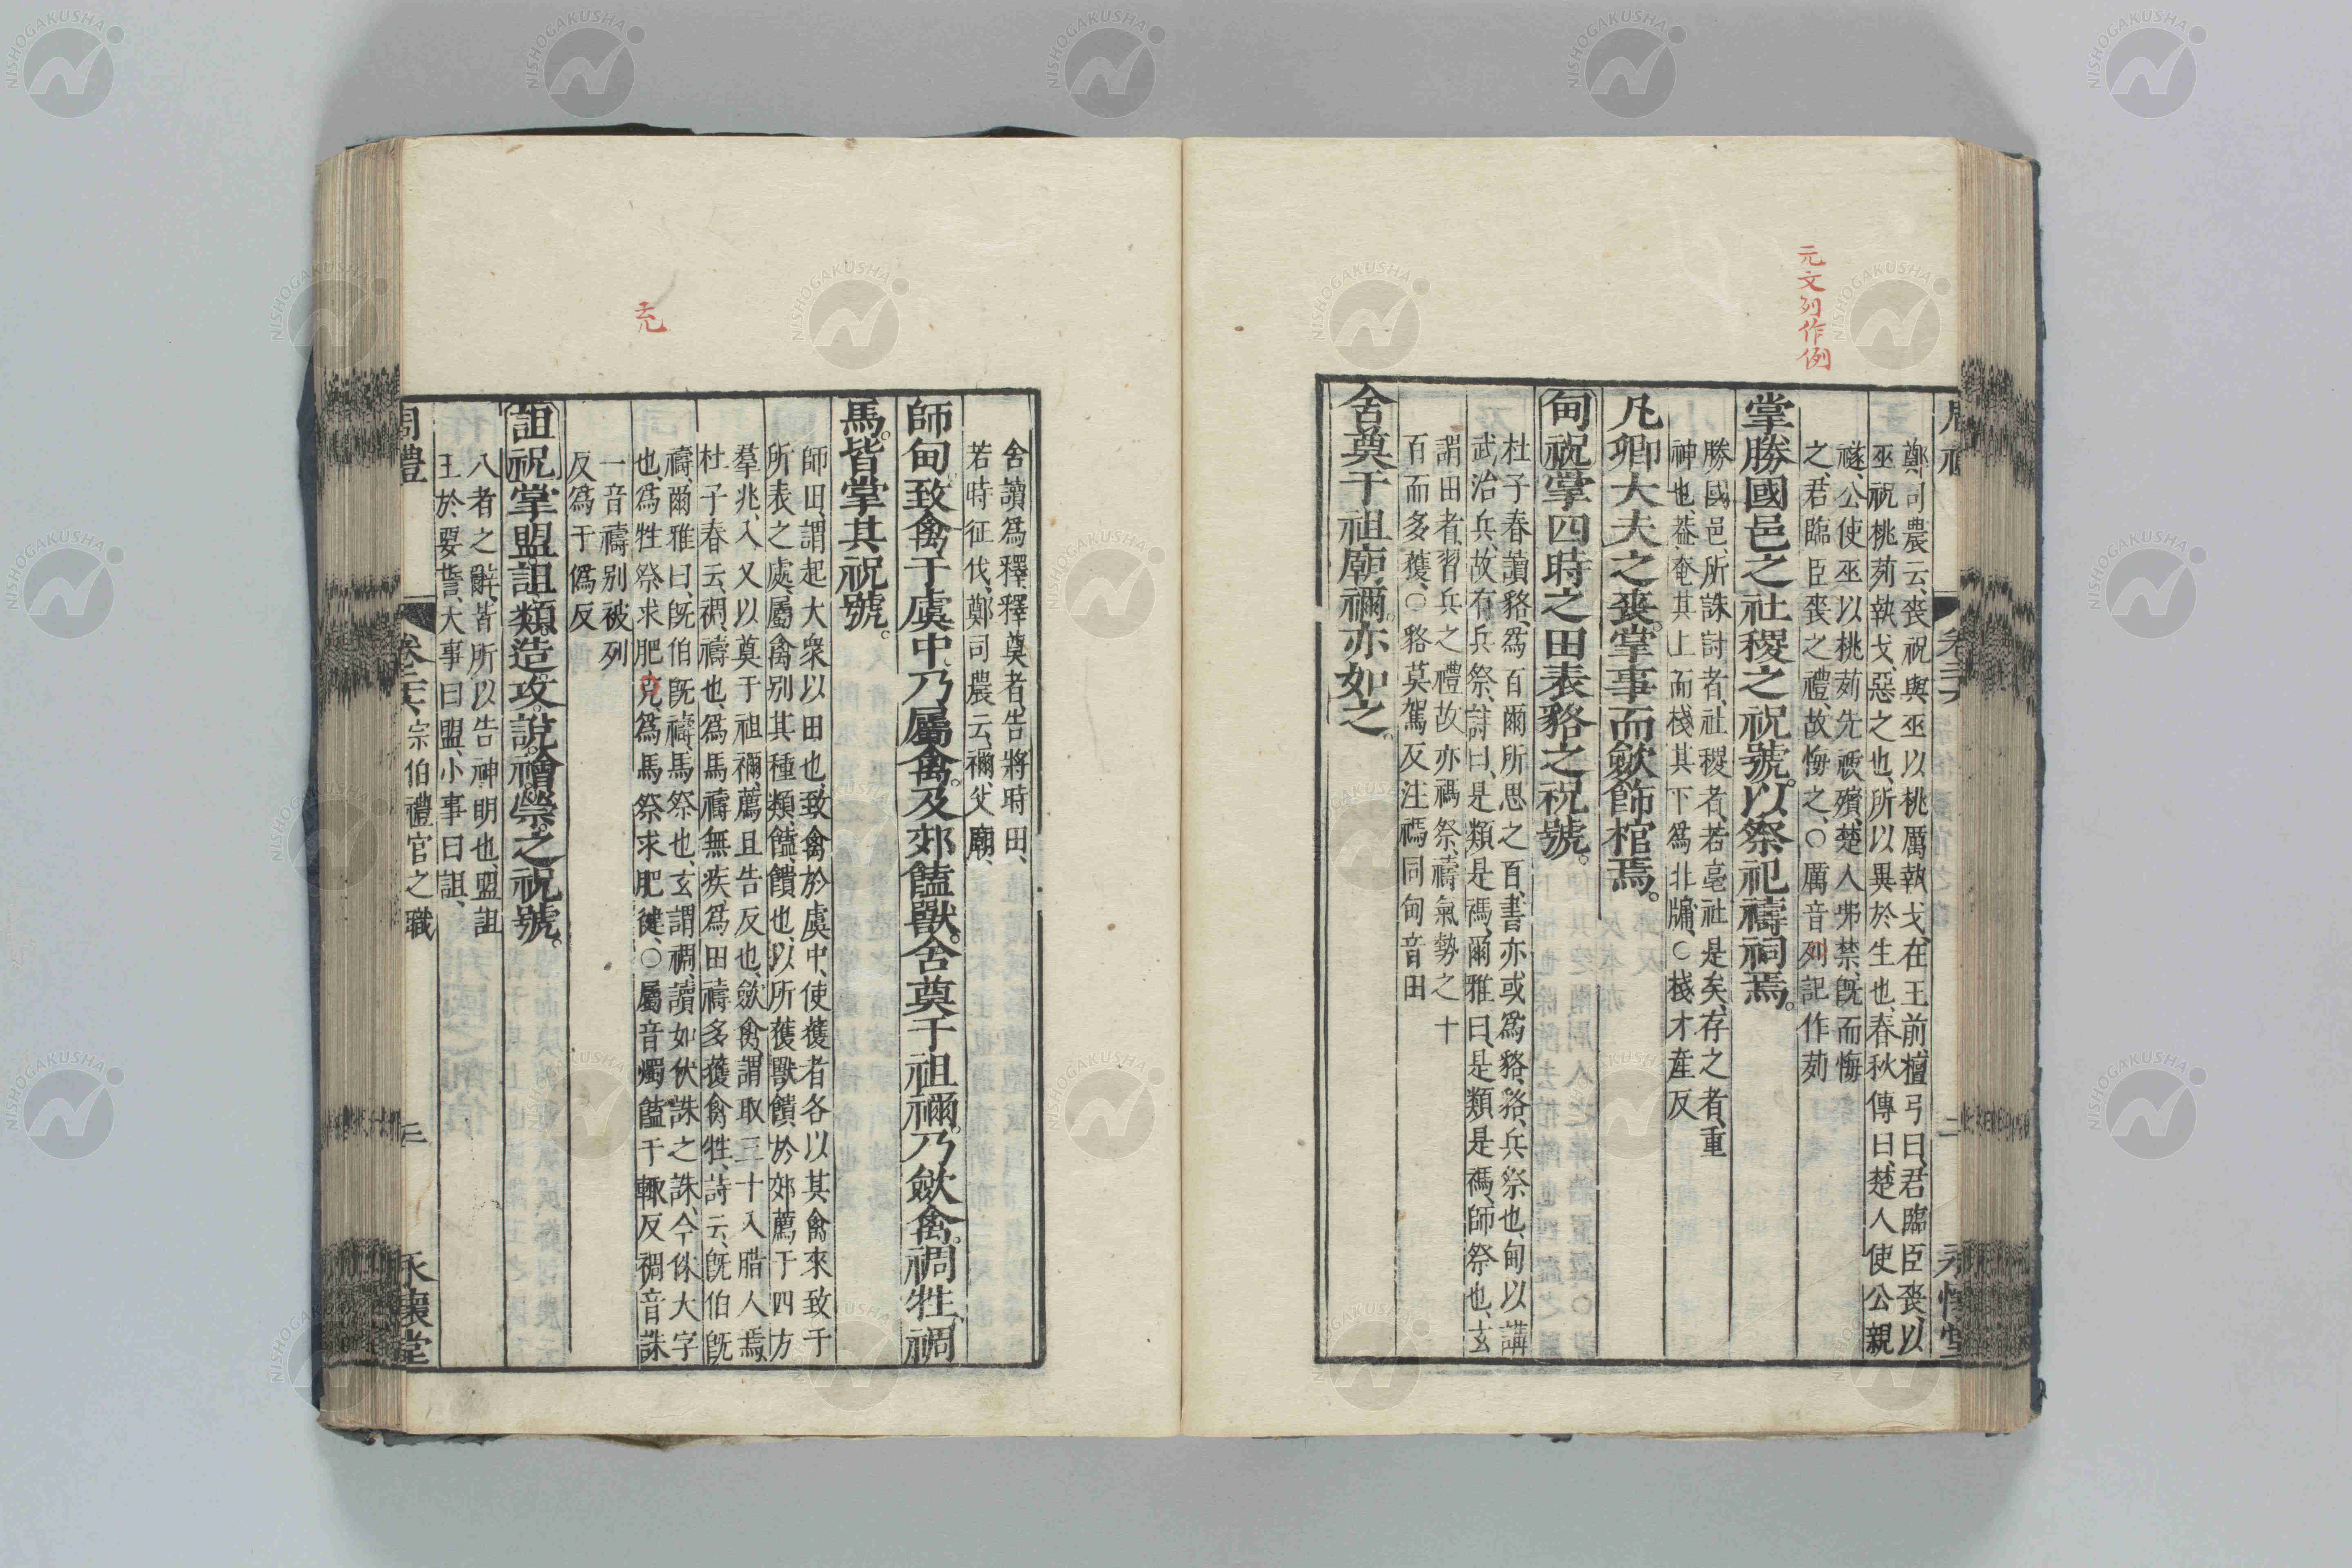 元文列作例
鄭司農云、喪祝與巫以桃厲執戈、在王前、檀弓曰、君臨臣喪、以
巫祝桃茢執戈、惡之也、所以異於生也、春秋傳曰、楚人使公親
襚、公使巫以桃茢先祓殯、楚人弗禁、旣而悔
之、君臨臣喪之禮、故悔之、○厲音列記作茢
掌勝國邑之社稷之祝號。以祭祀禱祠焉。
勝國邑、所誅討者、社稷者、若亳社是矣、存之者、重
神也、葢奄其上而棧其下爲北牖、○棧才產反
凡卿大夫之喪。掌事而斂飾棺焉。
甸祝掌四時之田表貉之祝號。
杜子春讀貉、爲百爾所思之百、書亦或爲貉、貉、兵祭也、甸以講
武治兵、故有兵祭、詩曰、是類是禡、爾雅曰、是類是禡、師祭也、玄
謂田者、習兵之禮故亦禡祭、禱氣勢之十
百而多獲、○貉莫駕反注禡同甸音田
舍奠于祖廟。禰亦如之。
舍讀爲釋、釋奠者、告將時田、
若時征伐、鄭司農云、禰父廟、
師甸。致禽于虞中。乃屬禽。及郊饁獸。舍奠于祖禰。乃斂禽。禂牲。禂
馬。皆掌其祝號。
師田、謂起大衆以田也、致禽於虞中、使獲者各以其禽來致于
所表之處、屬禽別其種類、饁、饋也、以所獲獸饋於郊、薦于四方
羣兆、入又以奠于祖禰、薦且告反也、斂禽、謂取三十入腊人焉、
杜子春云、禂、禱也、爲馬禱無疾、爲田禱多獲禽牲、詩云、旣伯旣
禱、爾雅曰、旣伯旣禱、馬祭也、玄謂禂、讀如伏誅之誅、今侏大字
也、爲牲祭求肥克、爲馬祭求肥健、○屬音燭饁于輒反禂音誅
一音禱別被列
反爲于僞反
詛祝掌盟詛類。造。攻。說。禬。禜。之祝號。
八者之辭、皆所以告神明也、盟詛
王於要誓、大事曰盟、小事曰詛、
周禮 卷二十六、宗伯禮官之職 三 永懷堂